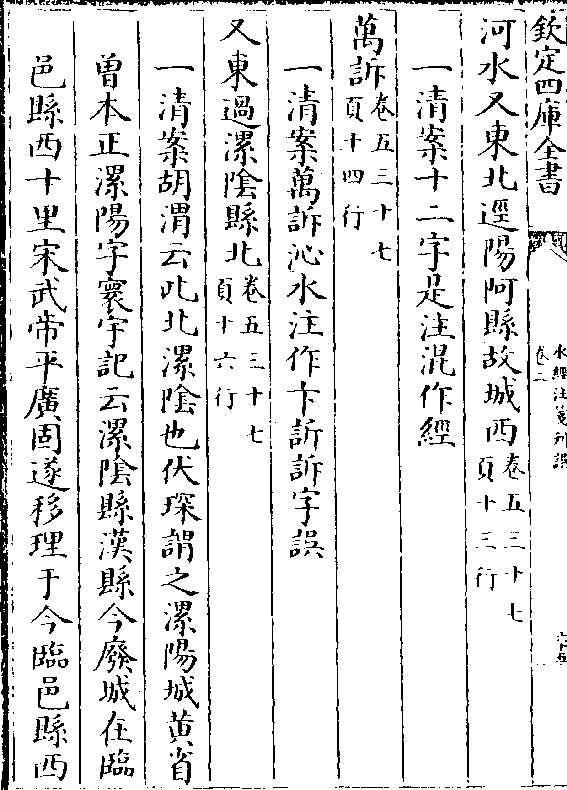 欽定四庫全書
水經注箋刊誤
卷二
河水又東北逕陽阿縣故城西卷五三十七頁十三行
一清案十二字是注混作經
萬訴卷五三十七頁十四行
一清案萬訴沁水注作卞訢訴字誤
又東過漯陰縣北卷五三十七頁十六行
一清案胡渭云此北漯陰也伏琛謂之漯陽城黃省
曾本正漯陽字寰宇記云漯陰縣漢縣今廢城在臨
邑縣西十里宋武帝平廣固遂移理于今臨邑縣西